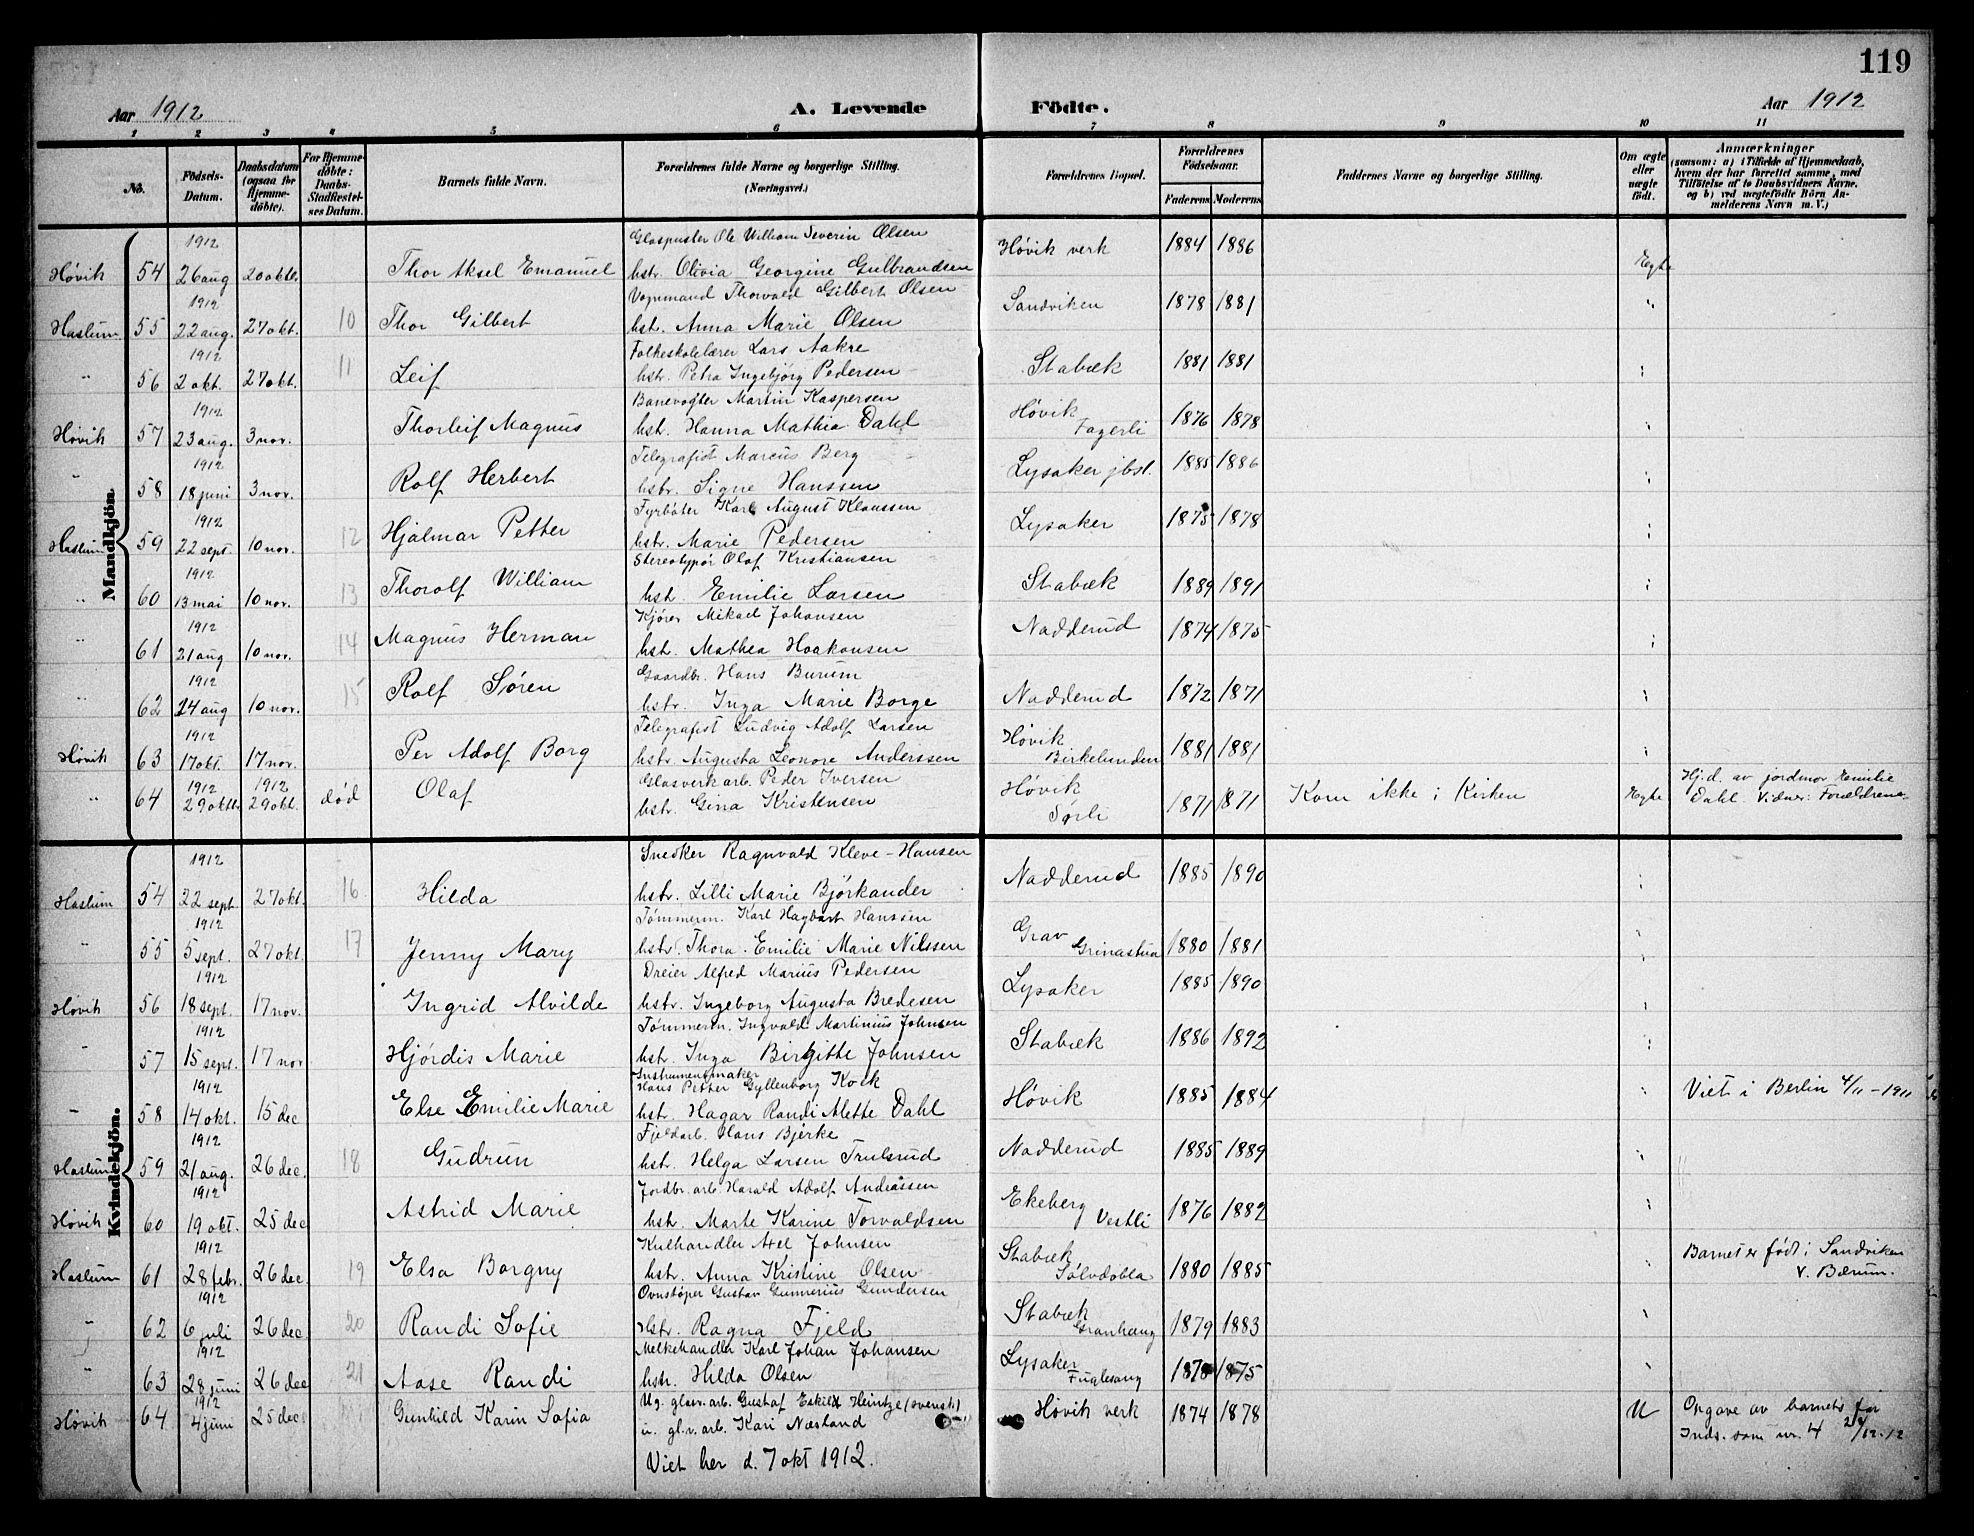 119
Aar 1912 A. Levende Födte. Aar 1912
1 2 3 4 5 6 7 8 9 10 11
No. Födsels-Datum. Daabsdatum (ogsaa for Hjemme-döbte). For Hjemme-döbte: Daabs-Stadfæstel-ses Datum. Barnets fulde Navn. Forældrenes fulde Navne og borgerlige Stilling. (Næringsvei.) Forældrenes Bopæl. Forældrenes Födselsaar. Faderens Moderens Faddernes Navne og borgerlige Stilling. Om ægte eller uægte födt. Anmærkninger (saasom: a) i Tilfælde af Hjemmedaab, hvem der har forrettet samme, med Tilföielse af to Daabsvidners Navne, og b) ved uægtefödte Börn An-melderens Navn m. V.)
Mandkjön.
1912 Glaspuster Ole William Severin Olsen Høvik verk 1884 1886
Høvik 54 26 aug 20 oktbr. Thor Aksel Emanuel hstr. Olivia Georgine Gulbrandsen Egte
1912 Vognmand Thorvald Gilbert Olsen Sandviken 1878 1881 "
Haslum 55 22 aug. 27 okt. 10 Thor Gilbert hst. Anna Marie Olsen
1912 Folkeskolelærer Lars Aakre Stabæk 1881 1881
" 56 2 okt. 27 okt. 11 Leif hst. Petra Ingebjörg Pedersen "
1912 Banevogter Martin Kaspersen Høvik 1876 1878
Høvik 57 23 aug. 3 nov. Thorleif Magnus hst. Hanna Mathea Dahl Fagerli "
1912 Telegrafist Marcus Berg Lysaker jbst. 1885 1886
" 58 18 juni 3 nov. Rolf Herbert hstr. Signe Hanssen "
1912 Fyrbøter Karl August Klaussen Lysaker 1875 1878
Haslum 59 22 sept. 10 nov. 12 Hjalmar Petter hstr. Marie Pedersen "
1912 Stereotypør Olaf Kristiansen Stabæk 1889 1891 "
" 60 13 mai 10 nov. 13 Thorolf William hst. Emilie Larsen
1912 Kjører Mikael Johansen Nadderud 1874 1875
" 61 21 aug 10 nov. 14 Magnus Herman hst. Mathea Haakonsen "
1912 Gaardbr. Hans Burum
" 62 24 aug 10 nov. 15 Rolf Søren hstr. Inga Marie Borge Nadderud 1872 1871 "
1912 Telegrafist Ludvig Adolf Larsen Høvik
Høvik 63 17 okt. 17 nov. Per Adolf Borg hstr. Augusta Leonore Anderssen Birkelunden 1881 1881 "
1912 1912 Glasverkarb. Peder Iversen Høvik Hj.d. av jordmor Emilie
" 64 29 oktbr. 29 okt. død Olaf hstr. Gina Kristensen Sørli 1871 1871 Kom ikke i Kirken Egte Dahl. Vidner: Forældrene
Kvindekjön.
1912 Snedker Ragnvald Kleve-Hansen Nadderud 1885 1890
Haslum 54 22 sept 27 okt. 16 Hilda hstr. Lilli Marie Bjørkander "
1912 Tømmerm. Karl Hagbart Hanssen Grav
" 55 5 sept. 27 okt. 17 Jenny Mary hstr. Thora Emilie Marie Nilssen Grinastua 1880 1881 "
1912 Dreier Alfred Marius Pedersen Lysaker 1885 1890
Høvik 56 18 sept. 17 nov. Ingrid Alvilde hstr. Ingeborg Augusta Bredesen "
1912 Tømmerm. Ingvald Martinius Johnsen Stabæk 1886 1892
" 57 15 sept. 17 nov Hjördis Marie hst. Inga Birgitte Johnsen "
1912 Instrumentmaker Hans Petter Gyllenborg Kock Høvik 1885 1884 " Viet i Berlin 4/11-1911
" 58 14 okt. 15 dec Else Emilie Marie hst. Hagar Randi Alette Dahl
1912 Fjeldarb. Hans Bjerke Nadderud 1885 1889
Haslum 59 21 aug. 26 dec. 18 Gudrun hst. Helga Larsen Trulsrud "
1912 Jordbr. arb. Harald Adolf Andreassen Ekeberg
Høvik 60 19 okt. 25 dec Astrid Marie hst. Marte Karine Torvaldsen Vestli 1876 1882 "
1912 Kulhandler Axel Johnsen Stabæk Barnet er født i Sandviken
Haslum 61 28 febr. 26 dec. 19 Elsa Borgny hst. Anna Kristine Olsen Sølvdobla 1880 1885 " V. Bærum.
1912 Ovnstøper Gustav Gunnerius Gundersen Stabæk
" 62 6 juli 26 dec. 20 Randi Sofie Hstr. Ragna Fjeld Granhaug 1879 1883 "
1912 Melkehandler Karl Johan Johansen Lysaker
" 63 28 juni 26 dec 21 Aase Randi hst. Hilda Olsen Fuglesang 1878 1875 "
1912 Ug. glasv. arb. Gustaf Eskil Heintze (svensk) Høvik verk 1874 1878 U Opgave av barnets far
Høvik 64 4 juni 25 dec Gunhild Karin Sofia u. gl.v. arb. Kari Næsland Inds. som nr. 4 28/12-12
Viet her d. 7 okt 1912.